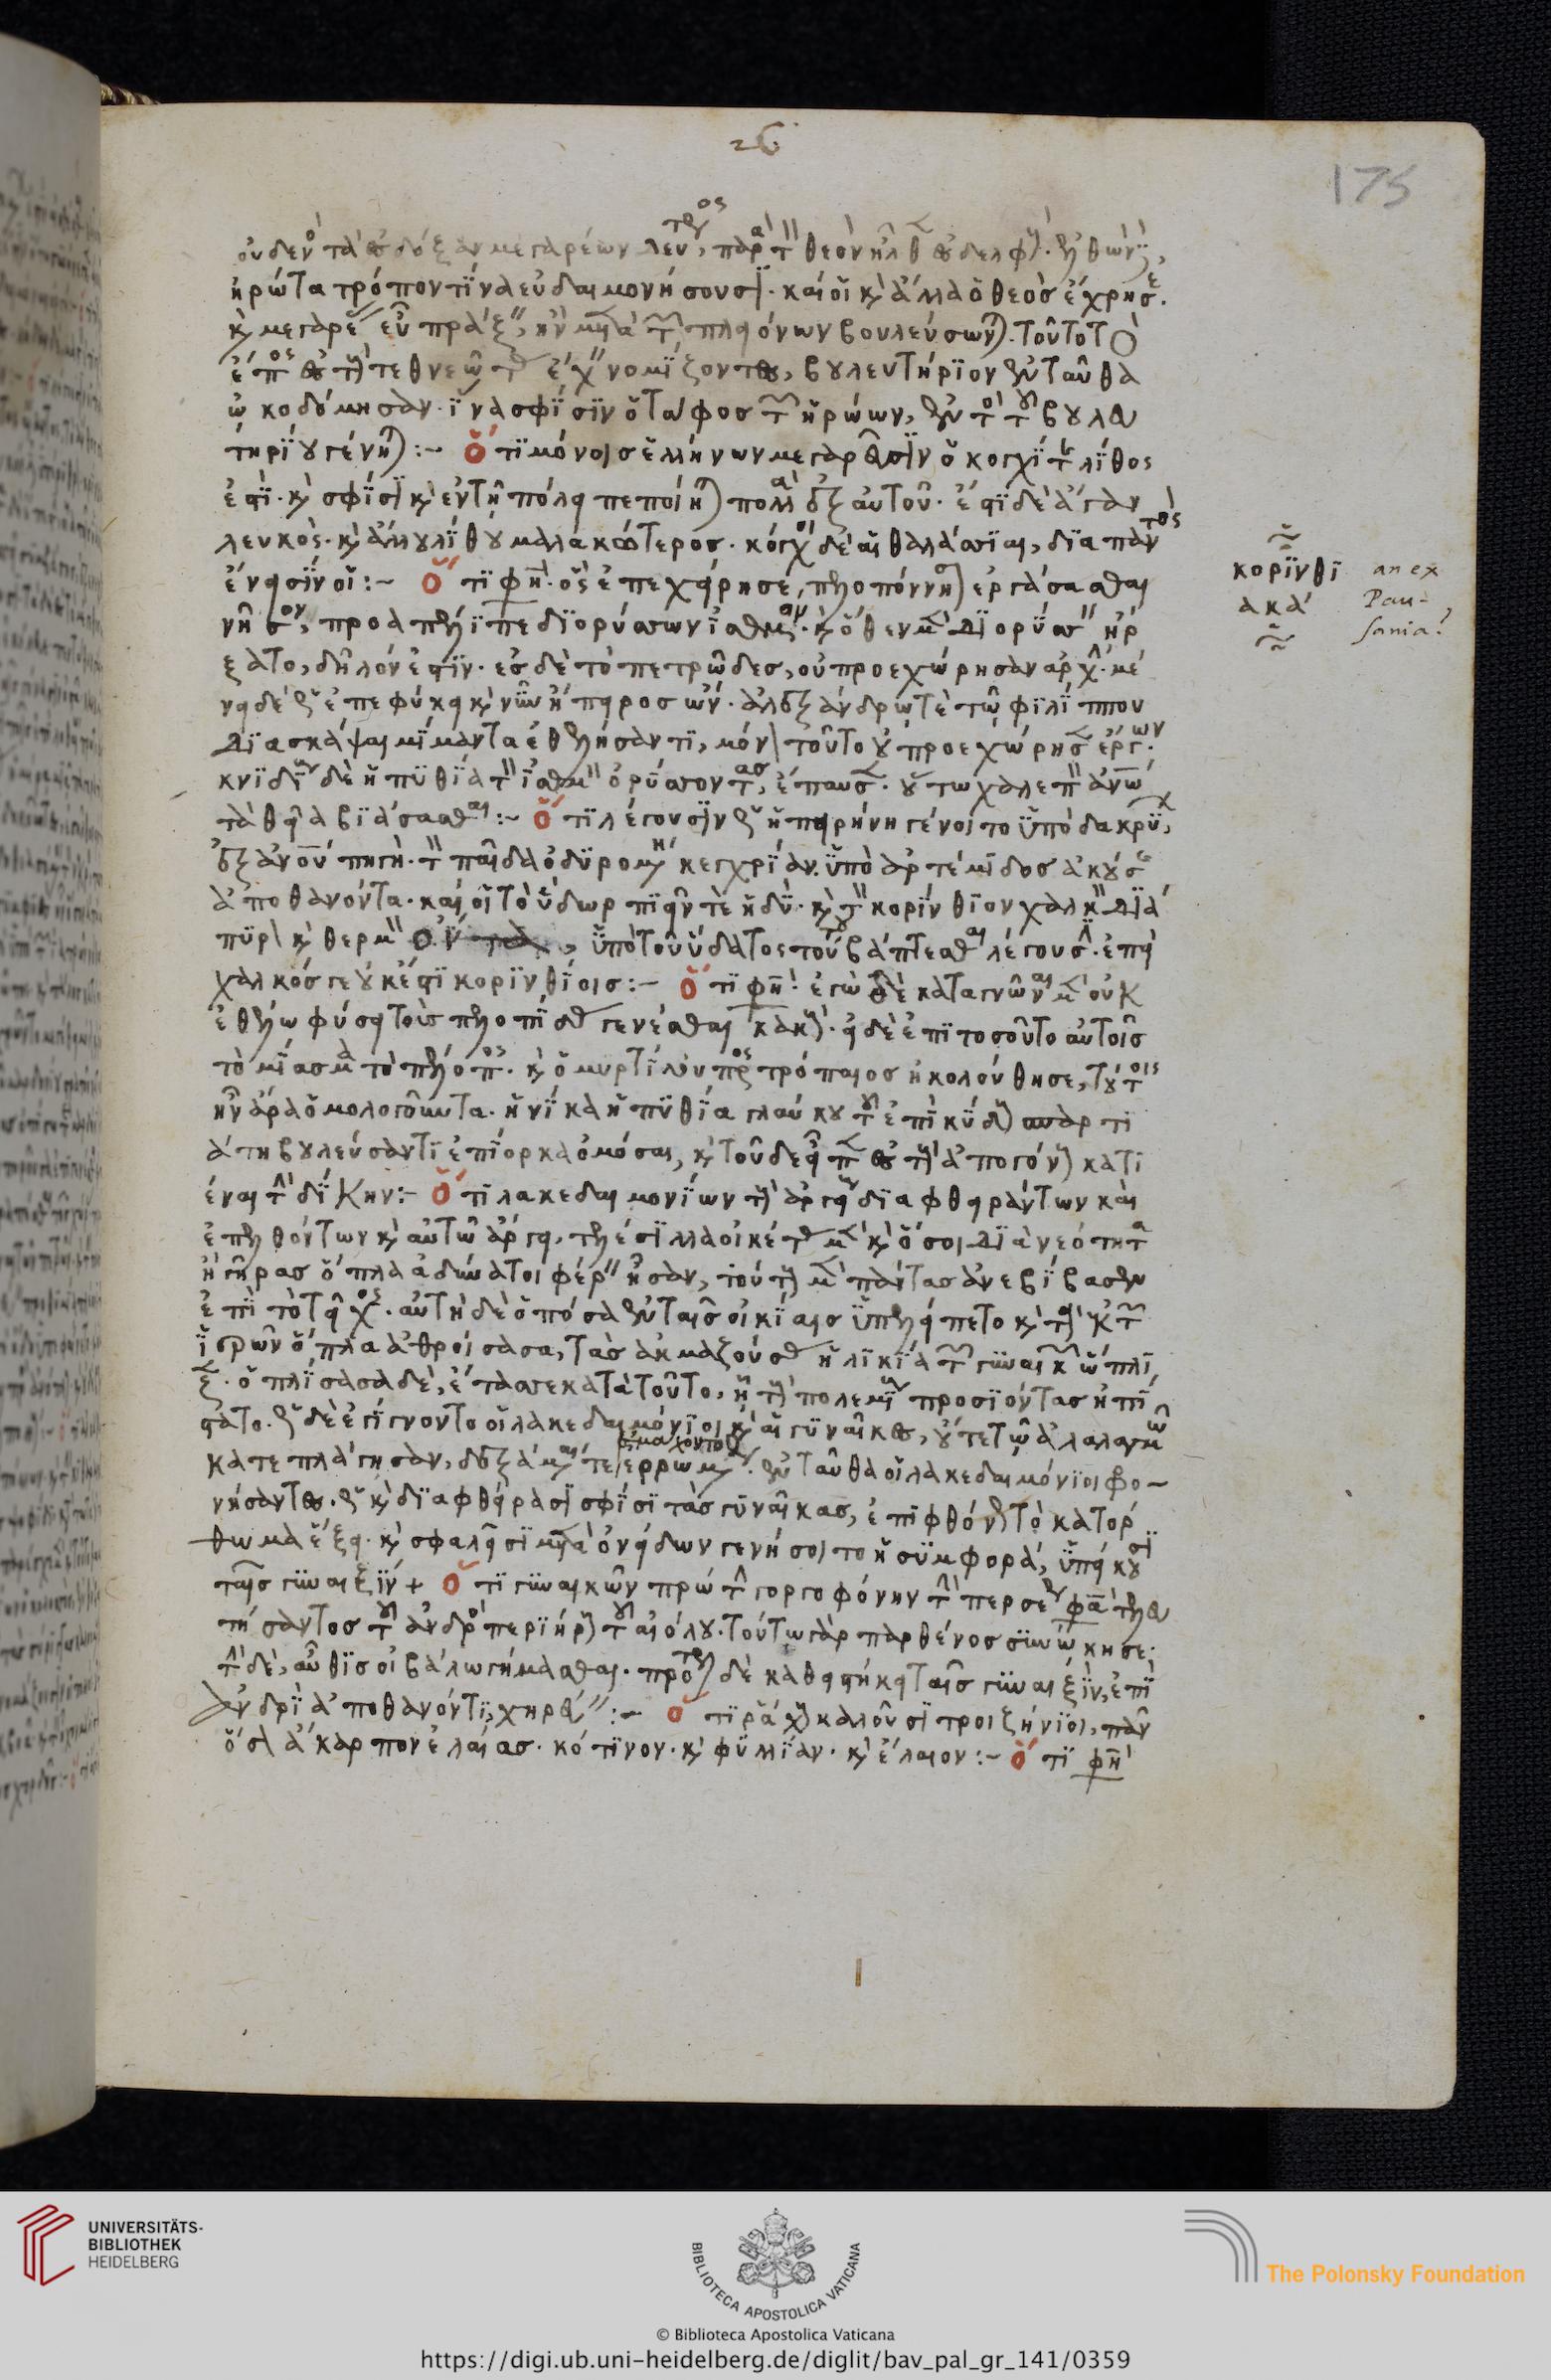 26
175
οὐδενὸς τὰ ἐς δόξαν μεγαρέων λειπόμενος, παρὰ τὸν θεὸν ἦλθεν ἐς δελφούς. ἐλθὼν δὲ,
ἠρώτα τρόπον τίνα εὐδαιμονήσουσι. καί οἱ καὶ ἄλλα ὁ θεὸς ἔχρησε.
καὶ μεγαρέας εὖ πράξειν, ἢν μετὰ τῶν πλειόνων βουλεύσωνται. τοῦτο τὸ
ἔπος ἐς τοὺς τεθνεῶτας ἔχειν νομίζοντες, βουλευτήριον ἐνταῦθα
ᾠκοδόμησαν. ἵνα σφίσιν ὁ τάφος τῶν ἡρώων, ἐντὸς τοῦ βουλευ
τηρίου γένηται :- ὅτι μόνοις ἑλλήνων μεγαρεῦσιν ὁ κογχίτης λίθος
ἐστί. καὶ σφίσι καὶ ἐν τῇ πόλει πεποίηται πολλὰ ἐξ αὐτοῦ. ἔστι δὲ ἄγαν
λευκὸς. καὶ ἄλλου λίθου μαλακώτερος. κόγχοι δὲ αἱ θαλάσσιαι, διὰ παντὸς
ἔνεισίν οἱ :- ὅτι φησὶν. ὃς ἐπεχείρησε, πελοπόννησον ἐργάσασθαι
νῆσον, προαπέλιπε διορύσσων ἰσθμόν. καὶ ὅθεν μὲν διορύσσειν ἤρ
ξατο, δῆλόν ἐστιν. ἐς δὲ τὸ πετρῶδες, οὐ προεχώρησαν ἀρχήν. μέ
νει δὲ ὡς ἐπεφύκει καὶ νῦν ἤπειρος ὤν. ἀλεξάνδρῳ τὲ τῷ φιλίππου
διασκάψαι μίμαντα ἐθελήσαντι, μόνον τοῦτο οὐ προεχώρησεν ἔργων.
κνιδίους δὲ ἡ πυθία τὸν ἰσθμὸν ὀρύσσοντας, ἔπαυσεν. οὕτω χαλεπὸν ἀνθρώπῳ
τὰ θεῖα βιάσασθαι :- ὅτι λέγουσιν ὡς ἡ πειρήνη γένοιτο ὑπὸ δακρύων,
ἐξ ἀνθρώπου πηγὴ. τὸν παῖδα ὀδυρομένη κεγχρίαν. ὑπὸ ἀρτέμιδος ἀκούσης
ἀποθανόντα. καί οἱ τὸ ὕδωρ πιεῖν τὲ ἡδύ. καὶ τὸν κορίνθιον χαλκὸν διά
πυρον καὶ θερμὸν ὄντα, ὑπὸ τοῦ ὕδατος τούτου βάπτεσθαι λέγουσιν. ἐπεὶ
χαλκός γε οὐκ ἔστι κορινθίοις :- ὅτι φησὶ. ἐγὼ δὲ καταγνῶναι μὲν οὐκ
ἐθέλω φύσει τοὺς πελοπίδας γενέσθαι κακούς. εἰ δὲ ἐπὶ τοσοῦτο αὐτοῖς
τὸ μίασμα τὸ πέλοπος. καὶ ὁ μυρτίλου προστρόπαιος ἠκολούθησε, τούτοις
ἦν ἄρα ὁμολογοῦντα. ἡνίκα ἡ πυθία γλαύκου τοῦ ἐπικύδους σπαρτι
άτη βουλεύσαντι ἐπίορκα ὀμόσαι, καὶ τοῦδε εἶπεν ἐς τοὺς ἀπογόνους κατι
έναι τὴν δίκην:- ὅτι λακεδαιμονίων τοὺς ἀργείους διαφθειράντων καὶ
ἐπελθόντων καὶ αὐτῷ ἄργει, τελέσιλλα οἰκέτας μὲν καὶ ὅσοι διὰ νεότητα
ἢ γῆρας ὅπλα ἀδύνατοι φέρειν ἦσαν, τούτους μὲν πάντας ἀνεβίβασεν
ἐπὶ τὸ τεῖχος. αὐτὴ δὲ ὁπόσα ἐν ταῖς οἰκίαις ὑπελείπετο καὶ τὰ ἐκ τῶν
ἱερῶν ὅπλα ἀθροίσασα, τὰς ἀκμαζούσας ἡλικίᾳ τῶν γυναικῶν ὥπλι
ζεν. ὁπλίσασα δὲ, ἔτασσε κατὰ τοῦτο, ᾗ τοὺς πολεμίους προσιόντας ἠπί
στατο. ὡς δὲ ἐγίγνοντο οἱ λακεδαιμόνιοι καὶ αἱ γυναῖκες, οὔτε τῷ ἀλαλαγμῷ
κατεπλάγησαν, δεξάμεναί τε ἐμάχοντο ἐρρωμένως. ἐνταῦθα οἱ λακεδαιμόνιοι φρο-
νήσαντες. ὡς καὶ διαφθείρασι σφίσι τὰς γυναῖκας, ἐπιφθόνως τὸ κατόρ
θωμα ἕξει. καὶ σφαλεῖσι μετὰ ὀνειδῶν γενήσοιτο ἡ συμφορά, ὑπείκουσι
ταῖς γυναιξίν + ὅτι γυναικῶν πρώτην γοργοφόνην τὴν περσέως φασὶ τελευ
τήσαντος τοῦ ἀνδρὸς περιήρους τοῦ αἰόλου. τούτῳ γὰρ παρθένος συνῴκησε.
τὴν δὲ, αὖθις οἰβάλῳ γήμασθαι. πρότερον δὲ καθεστήκει ταῖς γυναιξὶν, ἐπὶ
ἀνδρὶ ἀποθανόντι, χηρεύειν :- ὅτι ῥάχους καλοῦσι τροιζήνιοι, πᾶν
ὅσον ἄκαρπον ἐλαίας. κότινον. καὶ φυλλίαν. καὶ ἔλαιον :- ὅτι φησὶ
κορινθι
ακά
an ex
Pau-
sania?
UNIVERSITÄTS-
BIBLIOTHEK
HEIDELBERG
BIBLIOTECA APOSTOLICA VATICANA
The Polonsky Foundation
© Biblioteca Apostolica Vaticana
https://digi.ub.uni-heidelberg.de/diglit/bav_pal_gr_141/0359